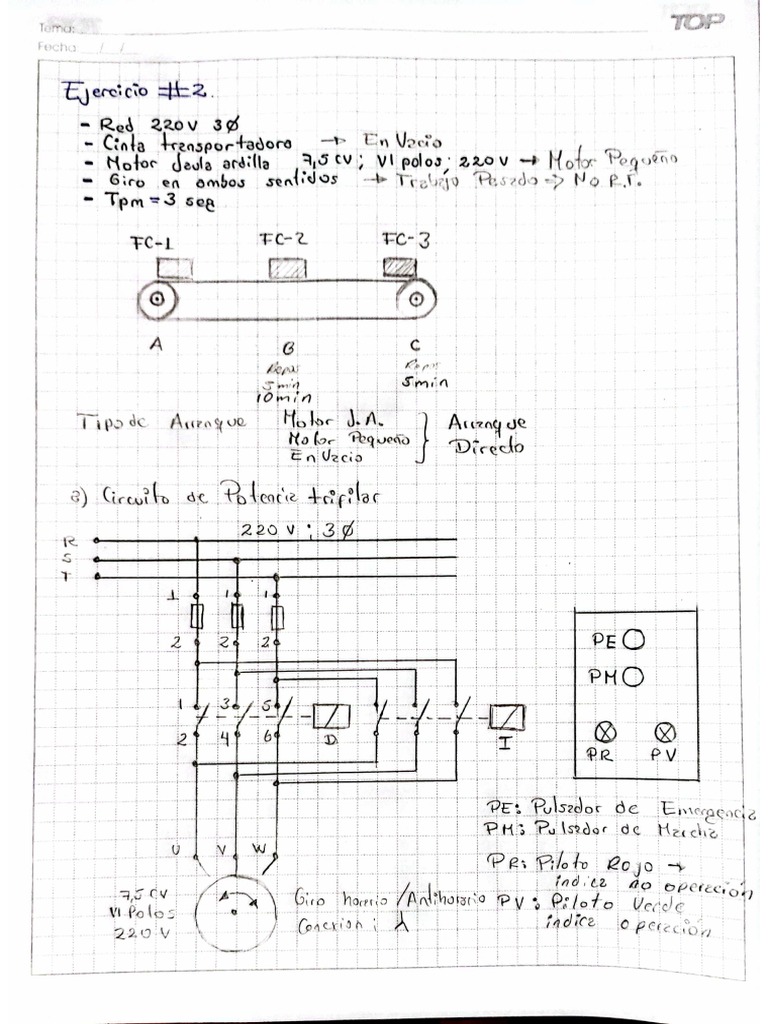 Tema:
TOP
Fecha: / /
Ejercicio #2.
- Red 220V 3Ø
- Cinta transportadora → En Vacio
- Motor Jaula ardilla 7,5 CV; VI polos; 220V → Motor Pequeño
- Giro en ambos sentidos → Trabajo Pesado => No R.T.
- Tpm = 3 seg
FC-1 FC-2 FC-3
A B C
Repos Repos
5min 5min
10min
Tipo de Arranque Motor J.A. } Arranque
Motor Pequeño Directo
En Vacio
a) Circuito de Potencia trifilar
220 V ; 3Ø
R
S
T
1 1 1
2 2 2
PE
PM
1 3 5
2 4 6 D I
PR PV
PE: Pulsador de Emergencia
PM: Pulsador de Marcha
U V W
PR: Piloto Rojo →
indica no operación
7,5 CV Giro horario / Antihorario PV: Piloto Verde
VI Polos Conexion: λ indica operación
220 V